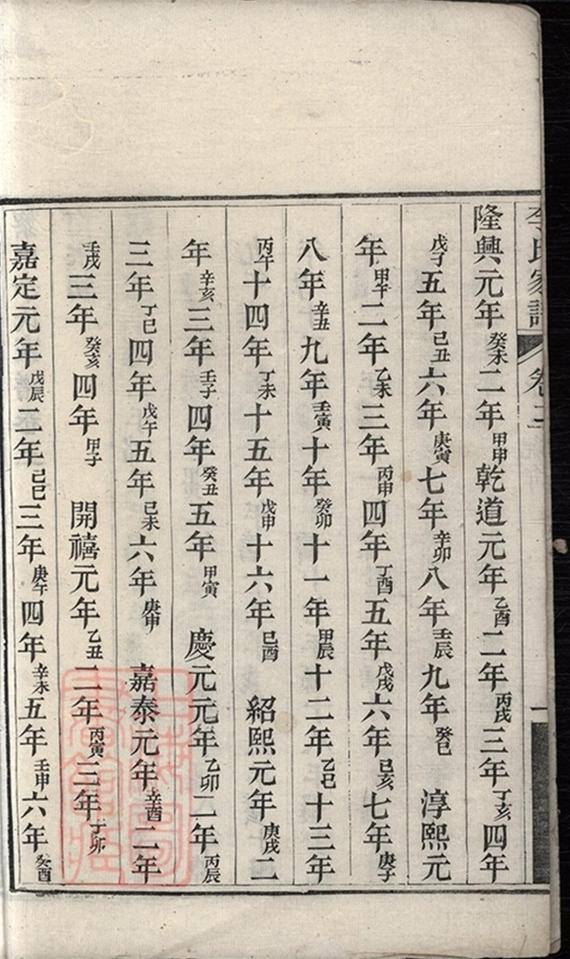 李氏家譜 卷二 一
隆興元年癸未二年甲申乾道元年乙酉二年丙戌三年丁亥四年
戊子五年己丑六年庚寅七年辛卯八年壬辰九年癸巳淳熙元
年甲午二年乙未三年丙申四年丁酉五年戊戌六年己亥七年庚子
八年辛丑九年壬寅十年癸卯十一年甲辰十二年乙巳十三年
丙午十四年丁未十五年戊申十六年己酉紹熙元年庚戌二
年辛亥三年壬子四年癸丑五年甲寅慶元元年乙卯二年丙辰
三年丁巳四年戊午五年己未六年庚申嘉泰元年辛酉二年
壬戌三年癸亥四年甲子開禧元年乙丑二年丙寅三年丁卯
嘉定元年戊辰二年己巳三年庚午四年辛未五年壬申六年癸酉